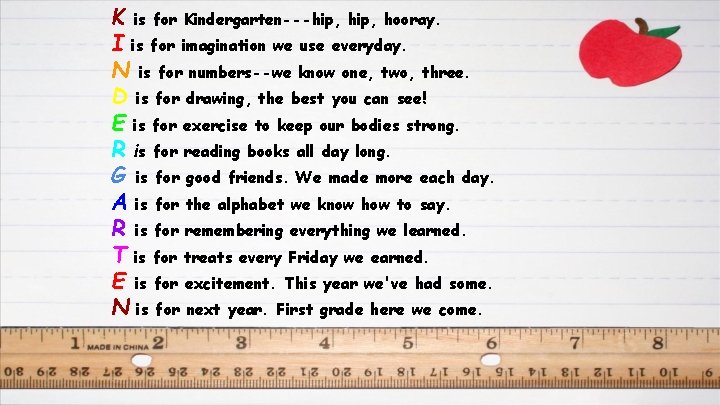 K is for Kindergarten---hip, hip, hooray.
I is for imagination we use everyday.
N is for numbers--we know one, two, three.
D is for drawing, the best you can see!
E is for exercise to keep our bodies strong.
R is for reading books all day long.
G is for good friends. We made more each day.
A is for the alphabet we know how to say.
R is for remembering everything we learned.
T is for treats every Friday we earned.
E is for excitement. This year we've had some.
N is for next year. First grade here we come.
1 MADE IN CHINA 2 3 4 5 6 7 8
30 29 28 27 26 25 24 23 22 21 20 19 18 17 16 15 14 13 12 11 10 9